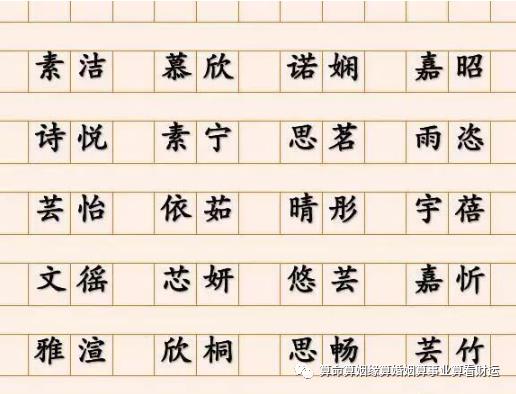 素洁 慕欣 诺娴 嘉昭
诗悦 素宁 思茗 雨恣
芸怡 依茹 晴彤 宇蓓
文徭 芯妍 悠芸 嘉忻
雅渲 欣桐 思畅 芸竹
算命算姻缘算婚姻算事业算看财运